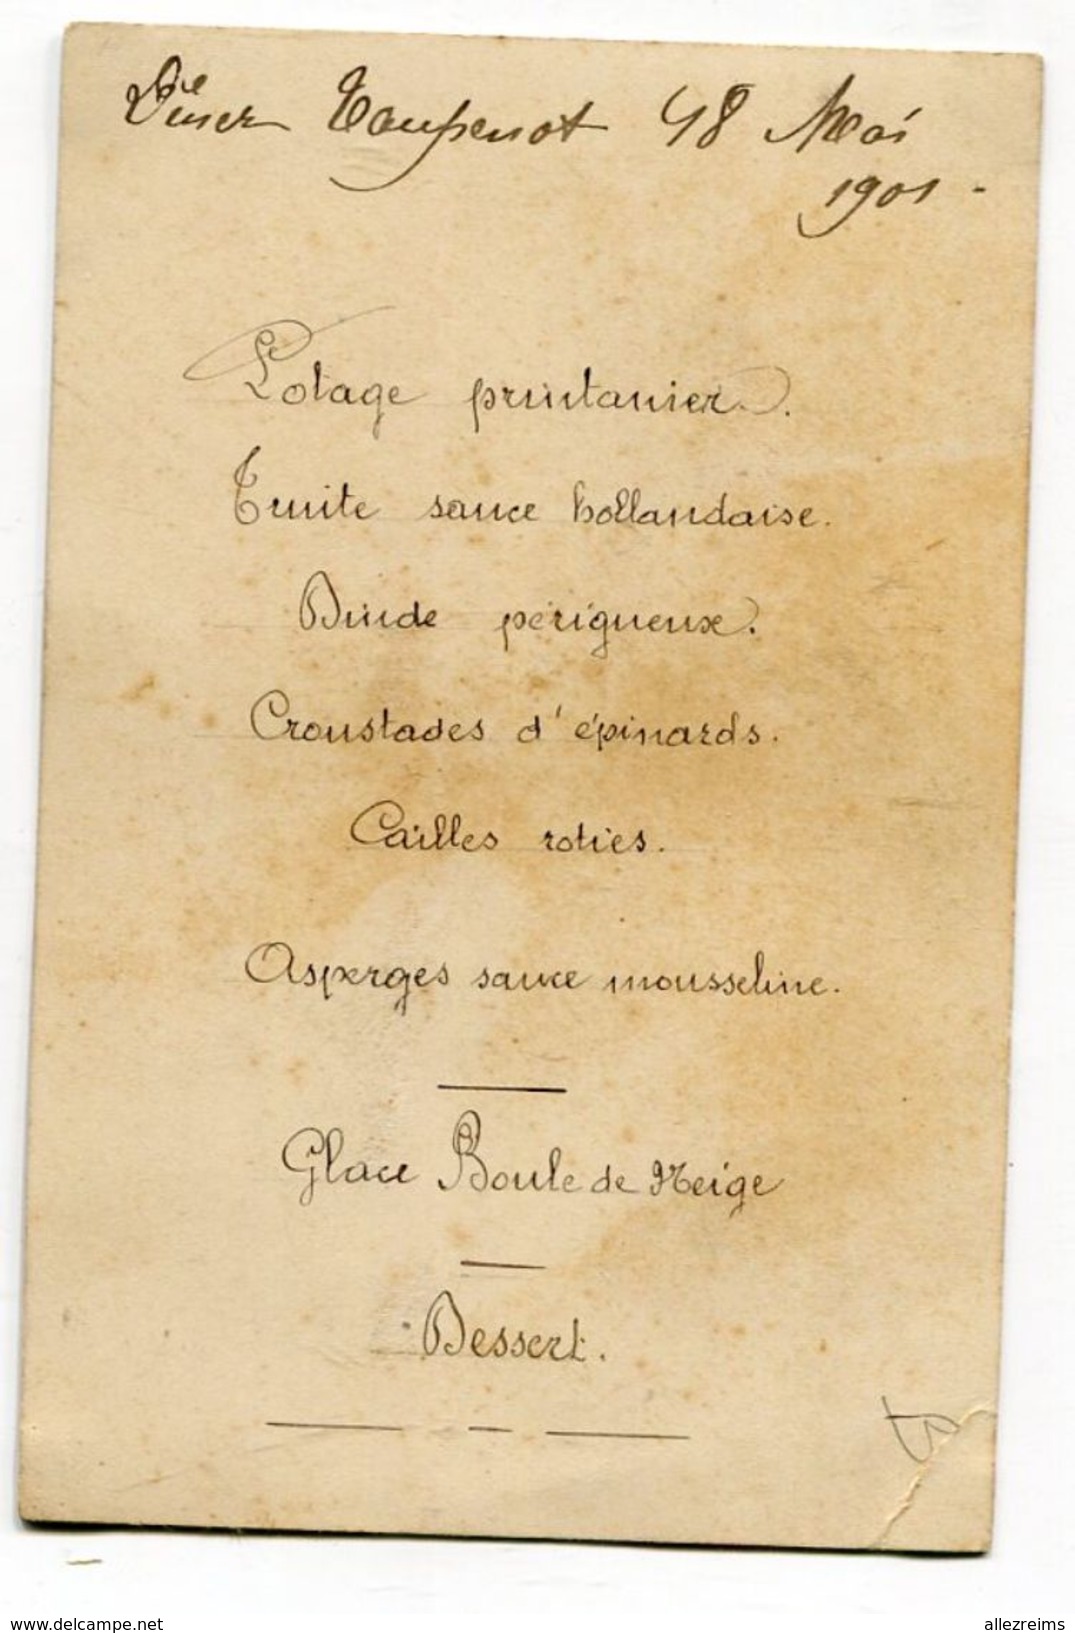 Dîner Taupenot 18 Mai
1901 -
Potage printanier.
Truite sauce hollandaise.
Dinde périgueux.
Croustades d'épinards.
Cailles roties.
Asperges sauce mousseline.
Glace Boule de Neige
Dessert.
www.delcampe.net
allezreims